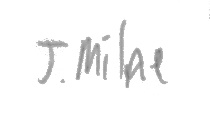 J. Milne